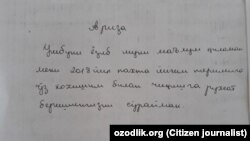 Ариза
Ушбуни ёзиб шуни маълум қиламан
мени 2018 йил пахта йиғим теримига
ўз хохишим билан чиқишга рухсат
беришингизни сўрайман
ozodlik.org (Citizen journalist)